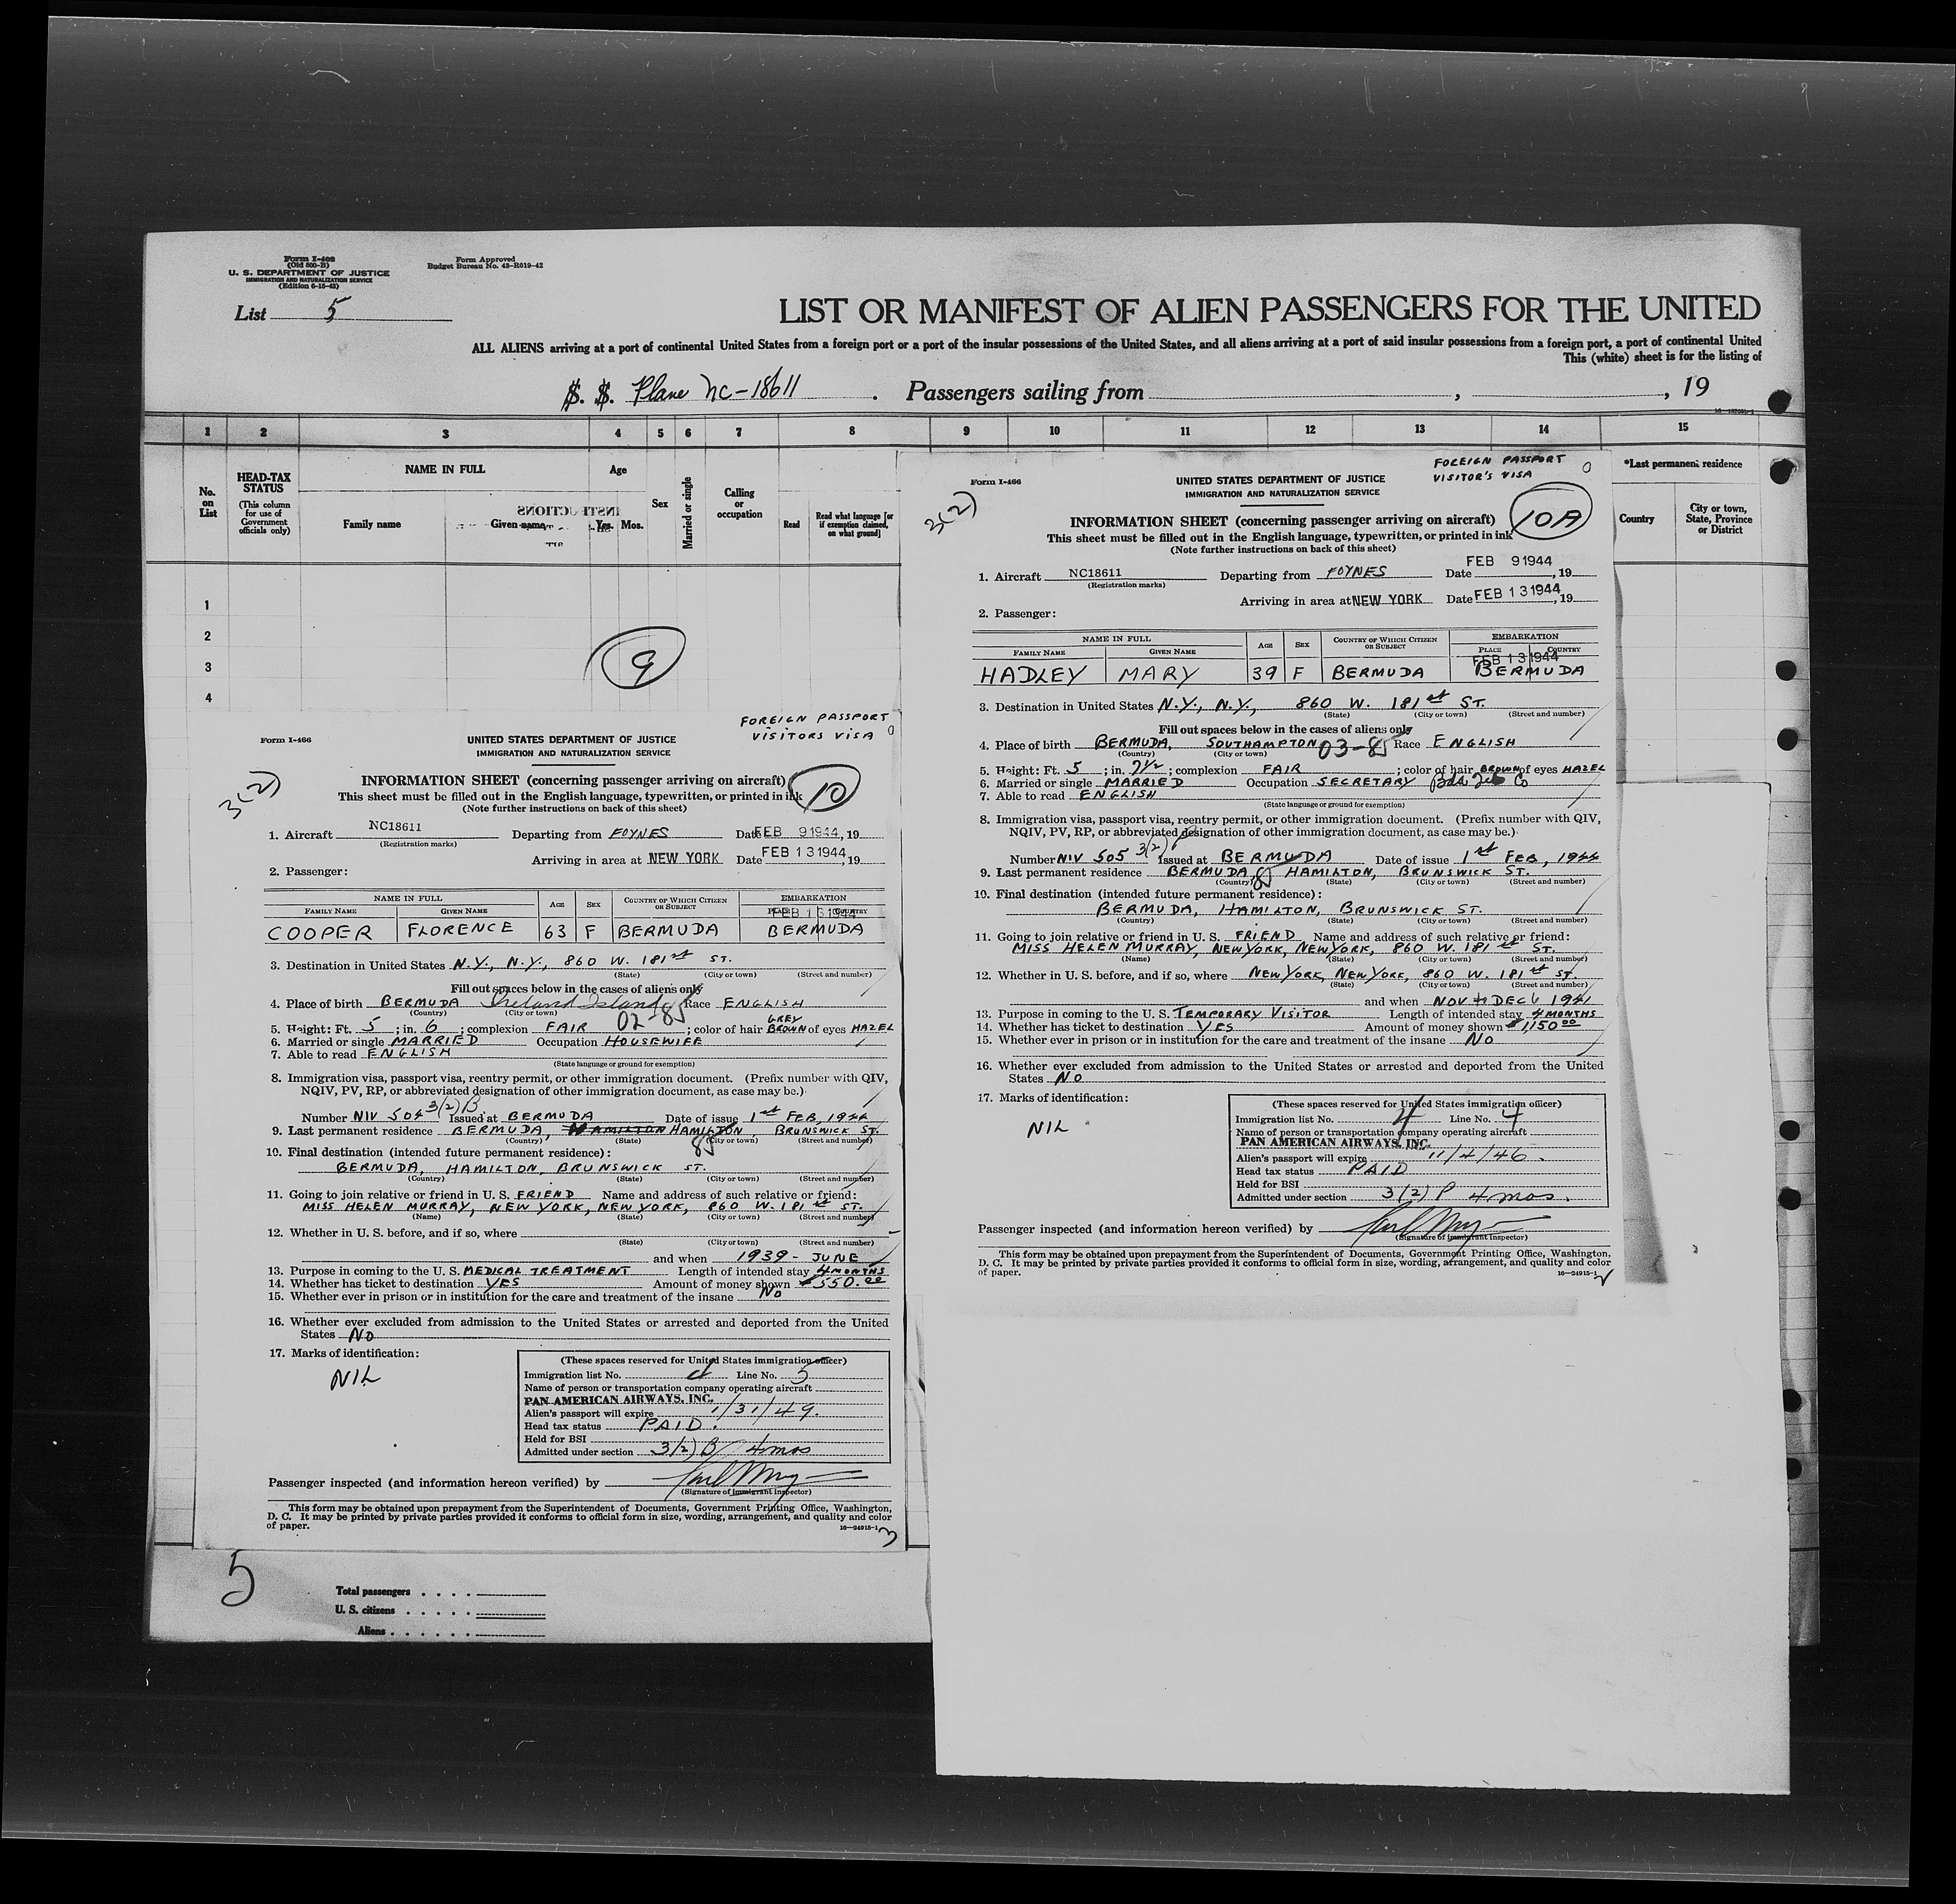 Form I-408
(Old 500-B)
U. S. DEPARTMENT OF JUSTICE
IMMIGRATION AND NATURALIZATION SERVICE
(Edition 6-15-43)
Form Approved
Budget Bureau No. 43-R019-42
List 5
LIST OR MANIFEST OF ALIEN PASSENGERS FOR THE UNITED
ALL ALIENS arriving at a port of continental United States from a foreign port or a port of the insular possessions of the United States, and all aliens arriving at a port of said insular possessions from a foreign port, a port of continental United
This (white) sheet is for the listing of
S. S. Plane NC-18611 . Passengers sailing from , , 19
1 2 3 4 5 6 7 8 9 10 11 12 13 14 15
No. on List
HEAD-TAX STATUS
(This column for use of Government officials only)
NAME IN FULL
Family name
Given name
Age
Yrs. Mos.
Sex
Married or single
Calling or occupation
Read
Read what language [or if exemption claimed, on what ground]
*Last permanent residence
Country
City or town, State, Province or District
1
2
3
4
9
FOREIGN PASSPORT
VISITORS VISA
0
Form I-466
UNITED STATES DEPARTMENT OF JUSTICE
IMMIGRATION AND NATURALIZATION SERVICE
3(2)
10
INFORMATION SHEET (concerning passenger arriving on aircraft)
This sheet must be filled out in the English language, typewritten, or printed in ink
(Note further instructions on back of this sheet)
1. Aircraft NC18611 Departing from FOYNES Date FEB 9 1944, 19
(Registration marks)
Arriving in area at NEW YORK Date FEB 13 1944, 19
2. Passenger:
NAME IN FULL AGE SEX COUNTRY OF WHICH CITIZEN OR SUBJECT EMBARKATION
FAMILY NAME GIVEN NAME PLACE COUNTRY
FEB 13 1944
COOPER FLORENCE 63 F BERMUDA BERMUDA
3. Destination in United States N.Y., N.Y., 860 W. 181st ST.
(State) (City or town) (Street and number)
Fill out spaces below in the cases of aliens only
4. Place of birth BERMUDA Ireland Island 02-85 Race ENGLISH
(Country) (City or town)
5. Height: Ft. 5 ; in. 6 ; complexion FAIR ; color of hair GREY BROWN of eyes HAZEL
6. Married or single MARRIED Occupation HOUSEWIFE
7. Able to read ENGLISH
(State language or ground for exemption)
8. Immigration visa, passport visa, reentry permit, or other immigration document. (Prefix number with QIV,
NQIV, PV, RP, or abbreviated designation of other immigration document, as case may be.)
Number NIV 504 3(2)B Issued at BERMUDA Date of issue 1st FEB, 1944
9. Last permanent residence BERMUDA, HAMILTON HAMILTON, BRUNSWICK ST.
(Country) (State) (City or town) (Street and number)
85
10. Final destination (intended future permanent residence):
BERMUDA, HAMILTON, BRUNSWICK ST.
(Country) (State) (City or town) (Street and number)
11. Going to join relative or friend in U. S. FRIEND Name and address of such relative or friend:
MISS HELEN MURRAY, NEW YORK, NEW YORK, 860 W. 181st ST.
(Name) (State) (City or town) (Street and number)
12. Whether in U. S. before, and if so, where
(State) (City or town) (Street and number)
and when 1939 - JUNE
13. Purpose in coming to the U. S. MEDICAL TREATMENT Length of intended stay 4 MONTHS
14. Whether has ticket to destination YES Amount of money shown $550.00
15. Whether ever in prison or in institution for the care and treatment of the insane NO
16. Whether ever excluded from admission to the United States or arrested and deported from the United
States NO
17. Marks of identification:
NIL
(These spaces reserved for United States immigration officer)
Immigration list No. 4 Line No. 5
Name of person or transportation company operating aircraft
PAN AMERICAN AIRWAYS, INC.
Alien's passport will expire 1/31/49.
Head tax status PAID.
Held for BSI
Admitted under section 3(2) B 4 mos
Passenger inspected (and information hereon verified) by
(Signature of immigrant inspector)
This form may be obtained upon prepayment from the Superintendent of Documents, Government Printing Office, Washington,
D. C. It may be printed by private parties provided it conforms to official form in size, wording, arrangement, and quality and color
of paper.
16—24915-1
5
Total passengers
U. S. citizens
Aliens
FOREIGN PASSPORT
VISITOR'S VISA
0
Form I-466
UNITED STATES DEPARTMENT OF JUSTICE
IMMIGRATION AND NATURALIZATION SERVICE
3(2)
10A
INFORMATION SHEET (concerning passenger arriving on aircraft)
This sheet must be filled out in the English language, typewritten, or printed in ink
(Note further instructions on back of this sheet)
1. Aircraft NC18611 Departing from FOYNES Date FEB 9 1944, 19
(Registration marks)
Arriving in area at NEW YORK Date FEB 13 1944, 19
2. Passenger:
NAME IN FULL AGE SEX COUNTRY OF WHICH CITIZEN OR SUBJECT EMBARKATION
FAMILY NAME GIVEN NAME PLACE COUNTRY
FEB 13 1944
HADLEY MARY 39 F BERMUDA BERMUDA
3. Destination in United States N.Y., N.Y., 860 W. 181st ST.
(State) (City or town) (Street and number)
Fill out spaces below in the cases of aliens only
4. Place of birth BERMUDA, SOUTHAMPTON 03-85 Race ENGLISH
(Country) (City or town)
5. Height: Ft. 5 ; in. 7½ ; complexion FAIR ; color of hair BROWN of eyes HAZEL
6. Married or single MARRIED Occupation SECRETARY
7. Able to read ENGLISH
(State language or ground for exemption)
8. Immigration visa, passport visa, reentry permit, or other immigration document. (Prefix number with QIV,
NQIV, PV, RP, or abbreviated designation of other immigration document, as case may be.)
Number NIV 505 3(2)P Issued at BERMUDA Date of issue 1st FEB, 1944
9. Last permanent residence BERMUDA, HAMILTON, BRUNSWICK ST.
(Country) (State) (City or town) (Street and number)
85
10. Final destination (intended future permanent residence):
BERMUDA, HAMILTON, BRUNSWICK ST.
(Country) (State) (City or town) (Street and number)
11. Going to join relative or friend in U. S. FRIEND Name and address of such relative or friend:
MISS HELEN MURRAY, NEW YORK, NEW YORK, 860 W. 181st ST.
(Name) (State) (City or town) (Street and number)
12. Whether in U. S. before, and if so, where NEW YORK, NEW YORK, 860 W. 181st ST.
(State) (City or town) (Street and number)
and when NOV to DEC 1941
13. Purpose in coming to the U. S. TEMPORARY VISITOR Length of intended stay 4 MONTHS
14. Whether has ticket to destination YES Amount of money shown $1,150.00
15. Whether ever in prison or in institution for the care and treatment of the insane NO
16. Whether ever excluded from admission to the United States or arrested and deported from the United
States NO
17. Marks of identification:
NIL
(These spaces reserved for United States immigration officer)
Immigration list No. 4 Line No. 4
Name of person or transportation company operating aircraft
PAN AMERICAN AIRWAYS, INC.
Alien's passport will expire 11/4/46.
Head tax status PAID
Held for BSI
Admitted under section 3(2) P 4 mos.
Passenger inspected (and information hereon verified) by
(Signature of immigrant inspector)
This form may be obtained upon prepayment from the Superintendent of Documents, Government Printing Office, Washington,
D. C. It may be printed by private parties provided it conforms to official form in size, wording, arrangement, and quality and color
of paper.
16—24915-1